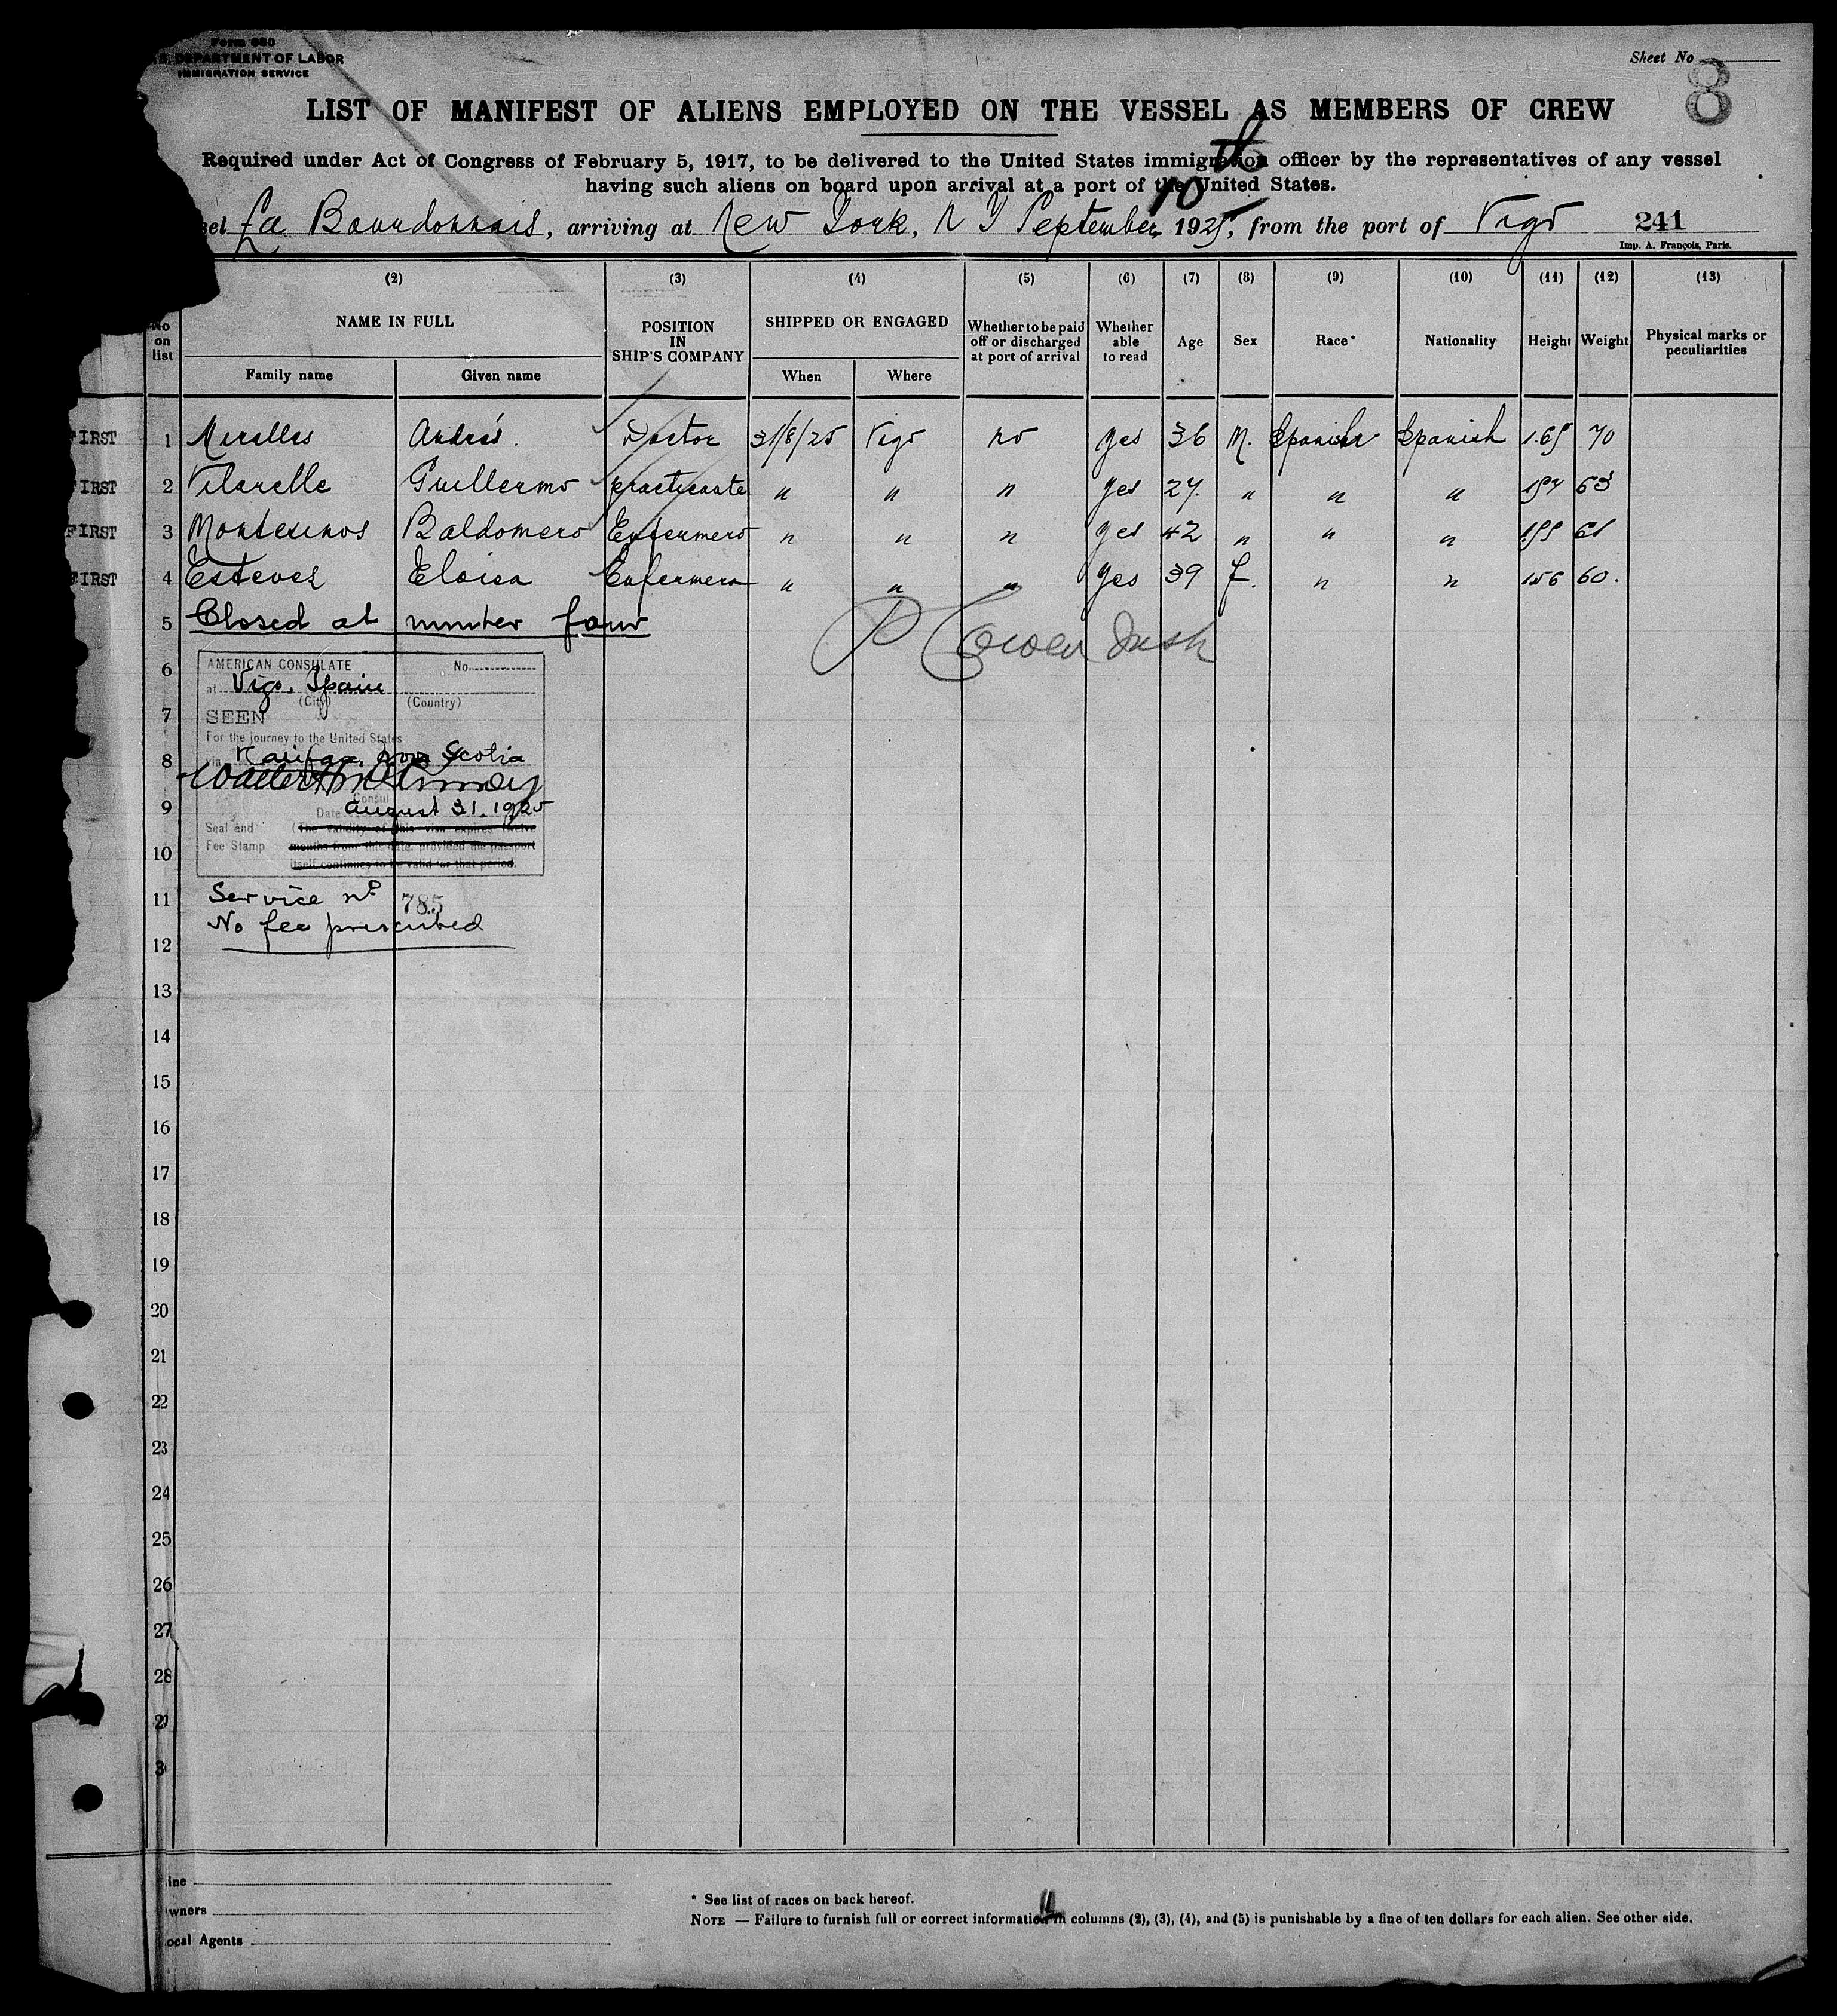 Form 680
S. DEPARTMENT OF LABOR
IMMIGRATION SERVICE
Sheet No
8
LIST OF MANIFEST OF ALIENS EMPLOYED ON THE VESSEL AS MEMBERS OF CREW
Required under Act of Congress of February 5, 1917, to be delivered to the United States immigration officer by the representatives of any vessel
having such aliens on board upon arrival at a port of the United States.
sel La Bourdonnais, arriving at New York, N Y September 10th 1925, from the port of Vigo 241
Imp. A. François, Paris.
(2) (3) (4) (5) (6) (7) (8) (9) (10) (11) (12) (13)
No on list NAME IN FULL Family name Given name POSITION IN SHIP'S COMPANY SHIPPED OR ENGAGED When Where Whether to be paid off or discharged at port of arrival Whether able to read Age Sex Race* Nationality Height Weight Physical marks or peculiarities
FIRST 1 Miralles Andrés. Doctor 31/8/25 Vigo no Yes 36 M. Spanish Spanish 1.65 70
FIRST 2 Vilarelle Guillermo practicante " " " yes 27. " " " 157 63
FIRST 3 Montesinos Baldomero Enfermero " " " yes 42 " " " 155 61
FIRST 4 Estevez Eloisa Enfermera " " " Yes 39 f. " " 156 60.
5 Closed at number four
6
AMERICAN CONSULATE No.
at Vigo, Spain
(City) (Country)
7
SEEN
For the journey to the United States
8
via Halifax, Nova Scotia
Consul
9
Date August 31. 1925
Seal and (The validity of this visa expires twelve
10
Fee Stamp months from this date, provided the passport
itself continues to be valid for that period.
11
Service no. 785
No fee prescribed
12
13
14
15
16
17
18
19
20
21
22
23
24
25
26
27
28
29
30
ine
wners
ocal Agents
* See list of races on back hereof.
11
NOTE — Failure to furnish full or correct information in columns (2), (3), (4), and (5) is punishable by a fine of ten dollars for each alien. See other side.